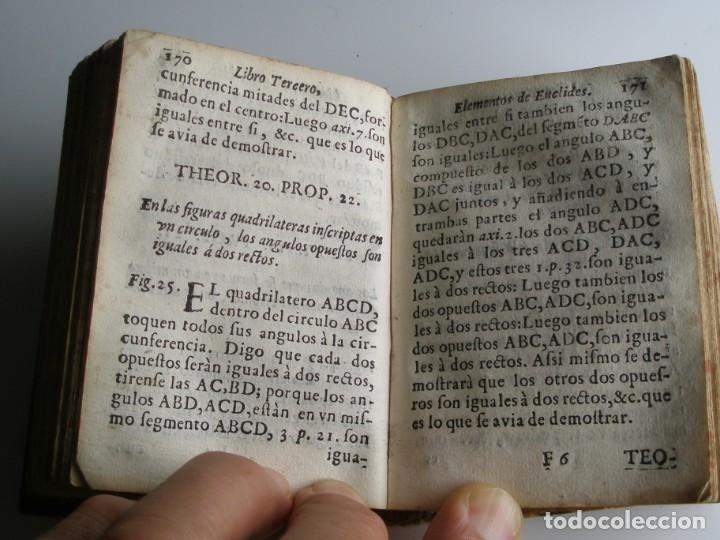 170
Libro Tercero,
cunferencia mitades del DEC, for
mado en el centro: Luego axi. 7. ſon
iguales entre ſi, &c. que es lo que
ſe avia de demoſtrar.
THEOR. 20. PROP. 22.
En las figuras quadrilateras inſcriptas en
vn circulo, los angulos opueſtos ſon
iguales à dos rectos.
Fig. 25. EL quadrilatero ABCD,
dentro del circulo ABC
toquen todos sus angulos à la cir-
cunferencia. Digo que cada dos
opueſtos seràn iguales à dos rectos,
tirenſe las AC, BD; porque los an-
gulos ABD, ACD, eſtàn en vn miſ-
mo ſegmento ABCD, 3 p. 21. ſon
igua-
Elementos de Euclides. 171
iguales entre ſi tambien los angu-
los DBC, DAC, del ſegmẽto DABC
ſon iguales: Luego el angulo ABC,
compueſto de los dos ABD, y
DBC es igual à los dos ACD, y
DAC juntos, y añadiendo à en-
trambas partes el angulo ADC,
quedaràn axi. 2. los dos ABC, ADC
iguales à los tres ACD, DAC,
ADC, y eſtos tres 1. p. 32. ſon igua-
les à dos rectos: Luego tambien los
dos opueſtos ABC, ADC, ſon igua-
les à dos rectos: Luego tambien los
dos opueſtos ABC, ADC, ſon igua-
les à dos rectos. Aſsi miſmo ſe de-
moſtrarà que los otros dos opueſ-
ros ſon iguales à dos rectos, &c. que
es lo que ſe avia de demoſtrar.
F 6 TEO-
todocoleccion.net